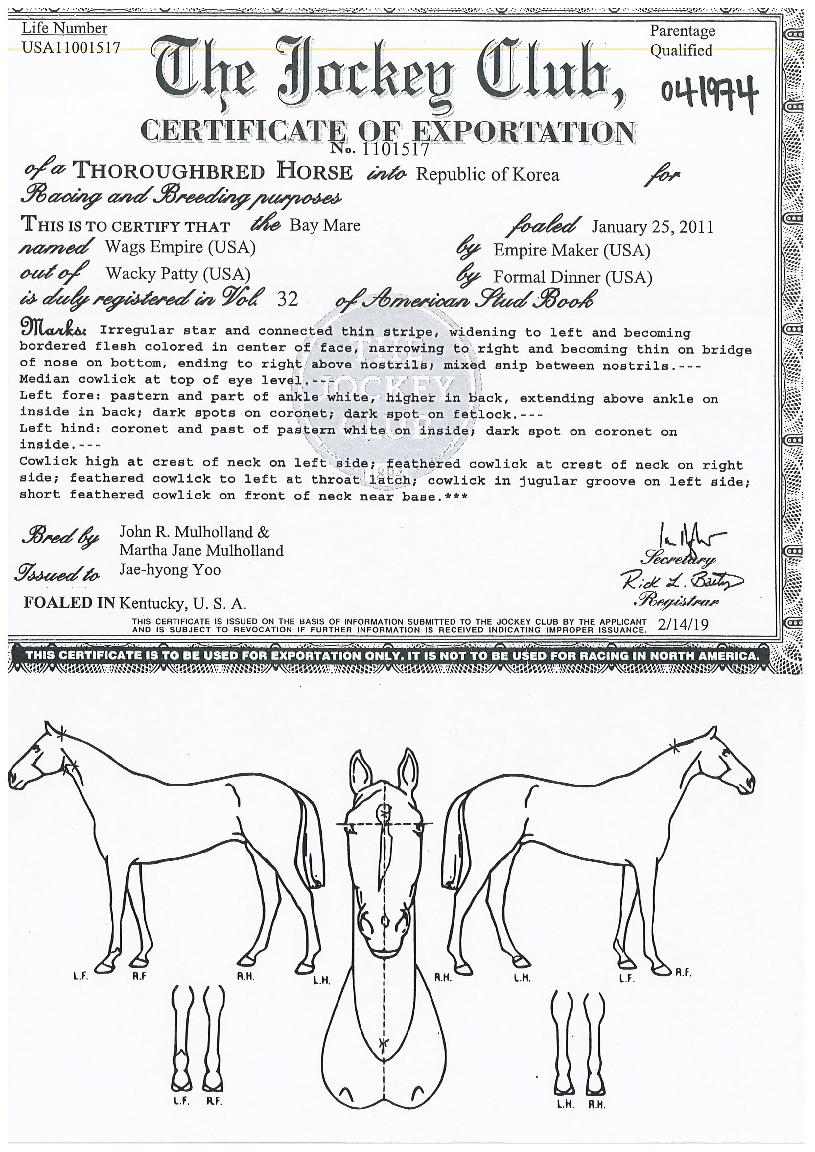 Life Number
USA11001517
Parentage
Qualified
041974
The Jockey Club,
CERTIFICATE OF EXPORTATION
No. 1101517
of a THOROUGHBRED HORSE into Republic of Korea for
Racing and Breeding purposes
THIS IS TO CERTIFY THAT the Bay Mare foaled January 25, 2011
named Wags Empire (USA) by Empire Maker (USA)
out of Wacky Patty (USA) by Formal Dinner (USA)
is duly registered in Vol. 32 of American Stud Book
Marks: Irregular star and connected thin stripe, widening to left and becoming
bordered flesh colored in center of face, narrowing to right and becoming thin on bridge
of nose on bottom, ending to right above nostrils; mixed snip between nostrils.---
Median cowlick at top of eye level.---
Left fore: pastern and part of ankle white, higher in back, extending above ankle on
inside in back; dark spots on coronet; dark spot on fetlock.---
Left hind: coronet and past of pastern white on inside; dark spot on coronet on
inside.---
Cowlick high at crest of neck on left side; feathered cowlick at crest of neck on right
side; feathered cowlick to left at throat latch; cowlick in jugular groove on left side;
short feathered cowlick on front of neck near base.***
THE
JOCKEY
CLUB
Bred by John R. Mulholland &
Martha Jane Mulholland
Issued to Jae-hyong Yoo
Secretary
Rick L. Bailey
Registrar
FOALED IN Kentucky, U. S. A.
THIS CERTIFICATE IS ISSUED ON THE BASIS OF INFORMATION SUBMITTED TO THE JOCKEY CLUB BY THE APPLICANT
AND IS SUBJECT TO REVOCATION IF FURTHER INFORMATION IS RECEIVED INDICATING IMPROPER ISSUANCE. 2/14/19
THIS CERTIFICATE IS TO BE USED FOR EXPORTATION ONLY. IT IS NOT TO BE USED FOR RACING IN NORTH AMERICA.
L.F. R.F R.H. L.H. R.H. L.H. L.F. R.F.
L.F. R.F. L.H. R.H.